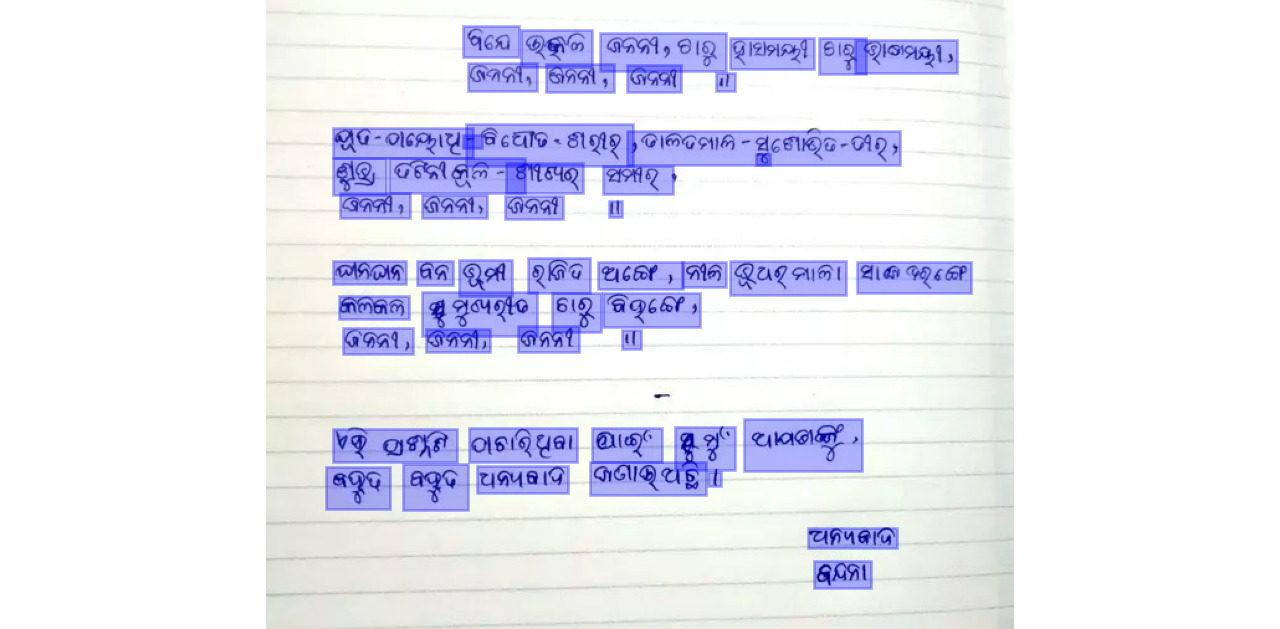 ବନ୍ଦେ ଉତ୍କଳ ଜନନୀ, ଚାରୁ ହାସମୟୀ ଚାରୁ ଭାଷମୟୀ,
ଜନନୀ, ଜନନୀ, ଜନନୀ ॥
ପୂତ-ପୟୋଧି-ବିଧୌତ-ଶରୀର, ତାଳତମାଳ-ସୁଶୋଭିତ-ତୀର,
ଶୁଭ୍ର ତଟିନୀକୂଳ-ଶୀକର ସମୀର,
ଜନନୀ, ଜନନୀ, ଜନନୀ ॥
ଘନଘନ ବନ ଭୂମୀ ରାଜିତ ଅଙ୍ଗେ, ନୀଳ ଭୂଧରମାଳା ସାଜେ ତରଙ୍ଗେ
କଳକଳ ମୁଖରୀତ ଚାରୁ ବିହଙ୍ଗେ,
ଜନନୀ, ଜନନୀ, ଜନନୀ ॥
ଏହି ପ୍ରଶ୍ନଟି ପଚାରିଥିବା ପାଇଁ ମୁଁ ଆପଣଙ୍କୁ,
ବହୁତ ବହୁତ ଧନ୍ୟବାଦ ଜଣାଇଅଛି ।
ଧନ୍ୟବାଦ
ବନ୍ଦନା